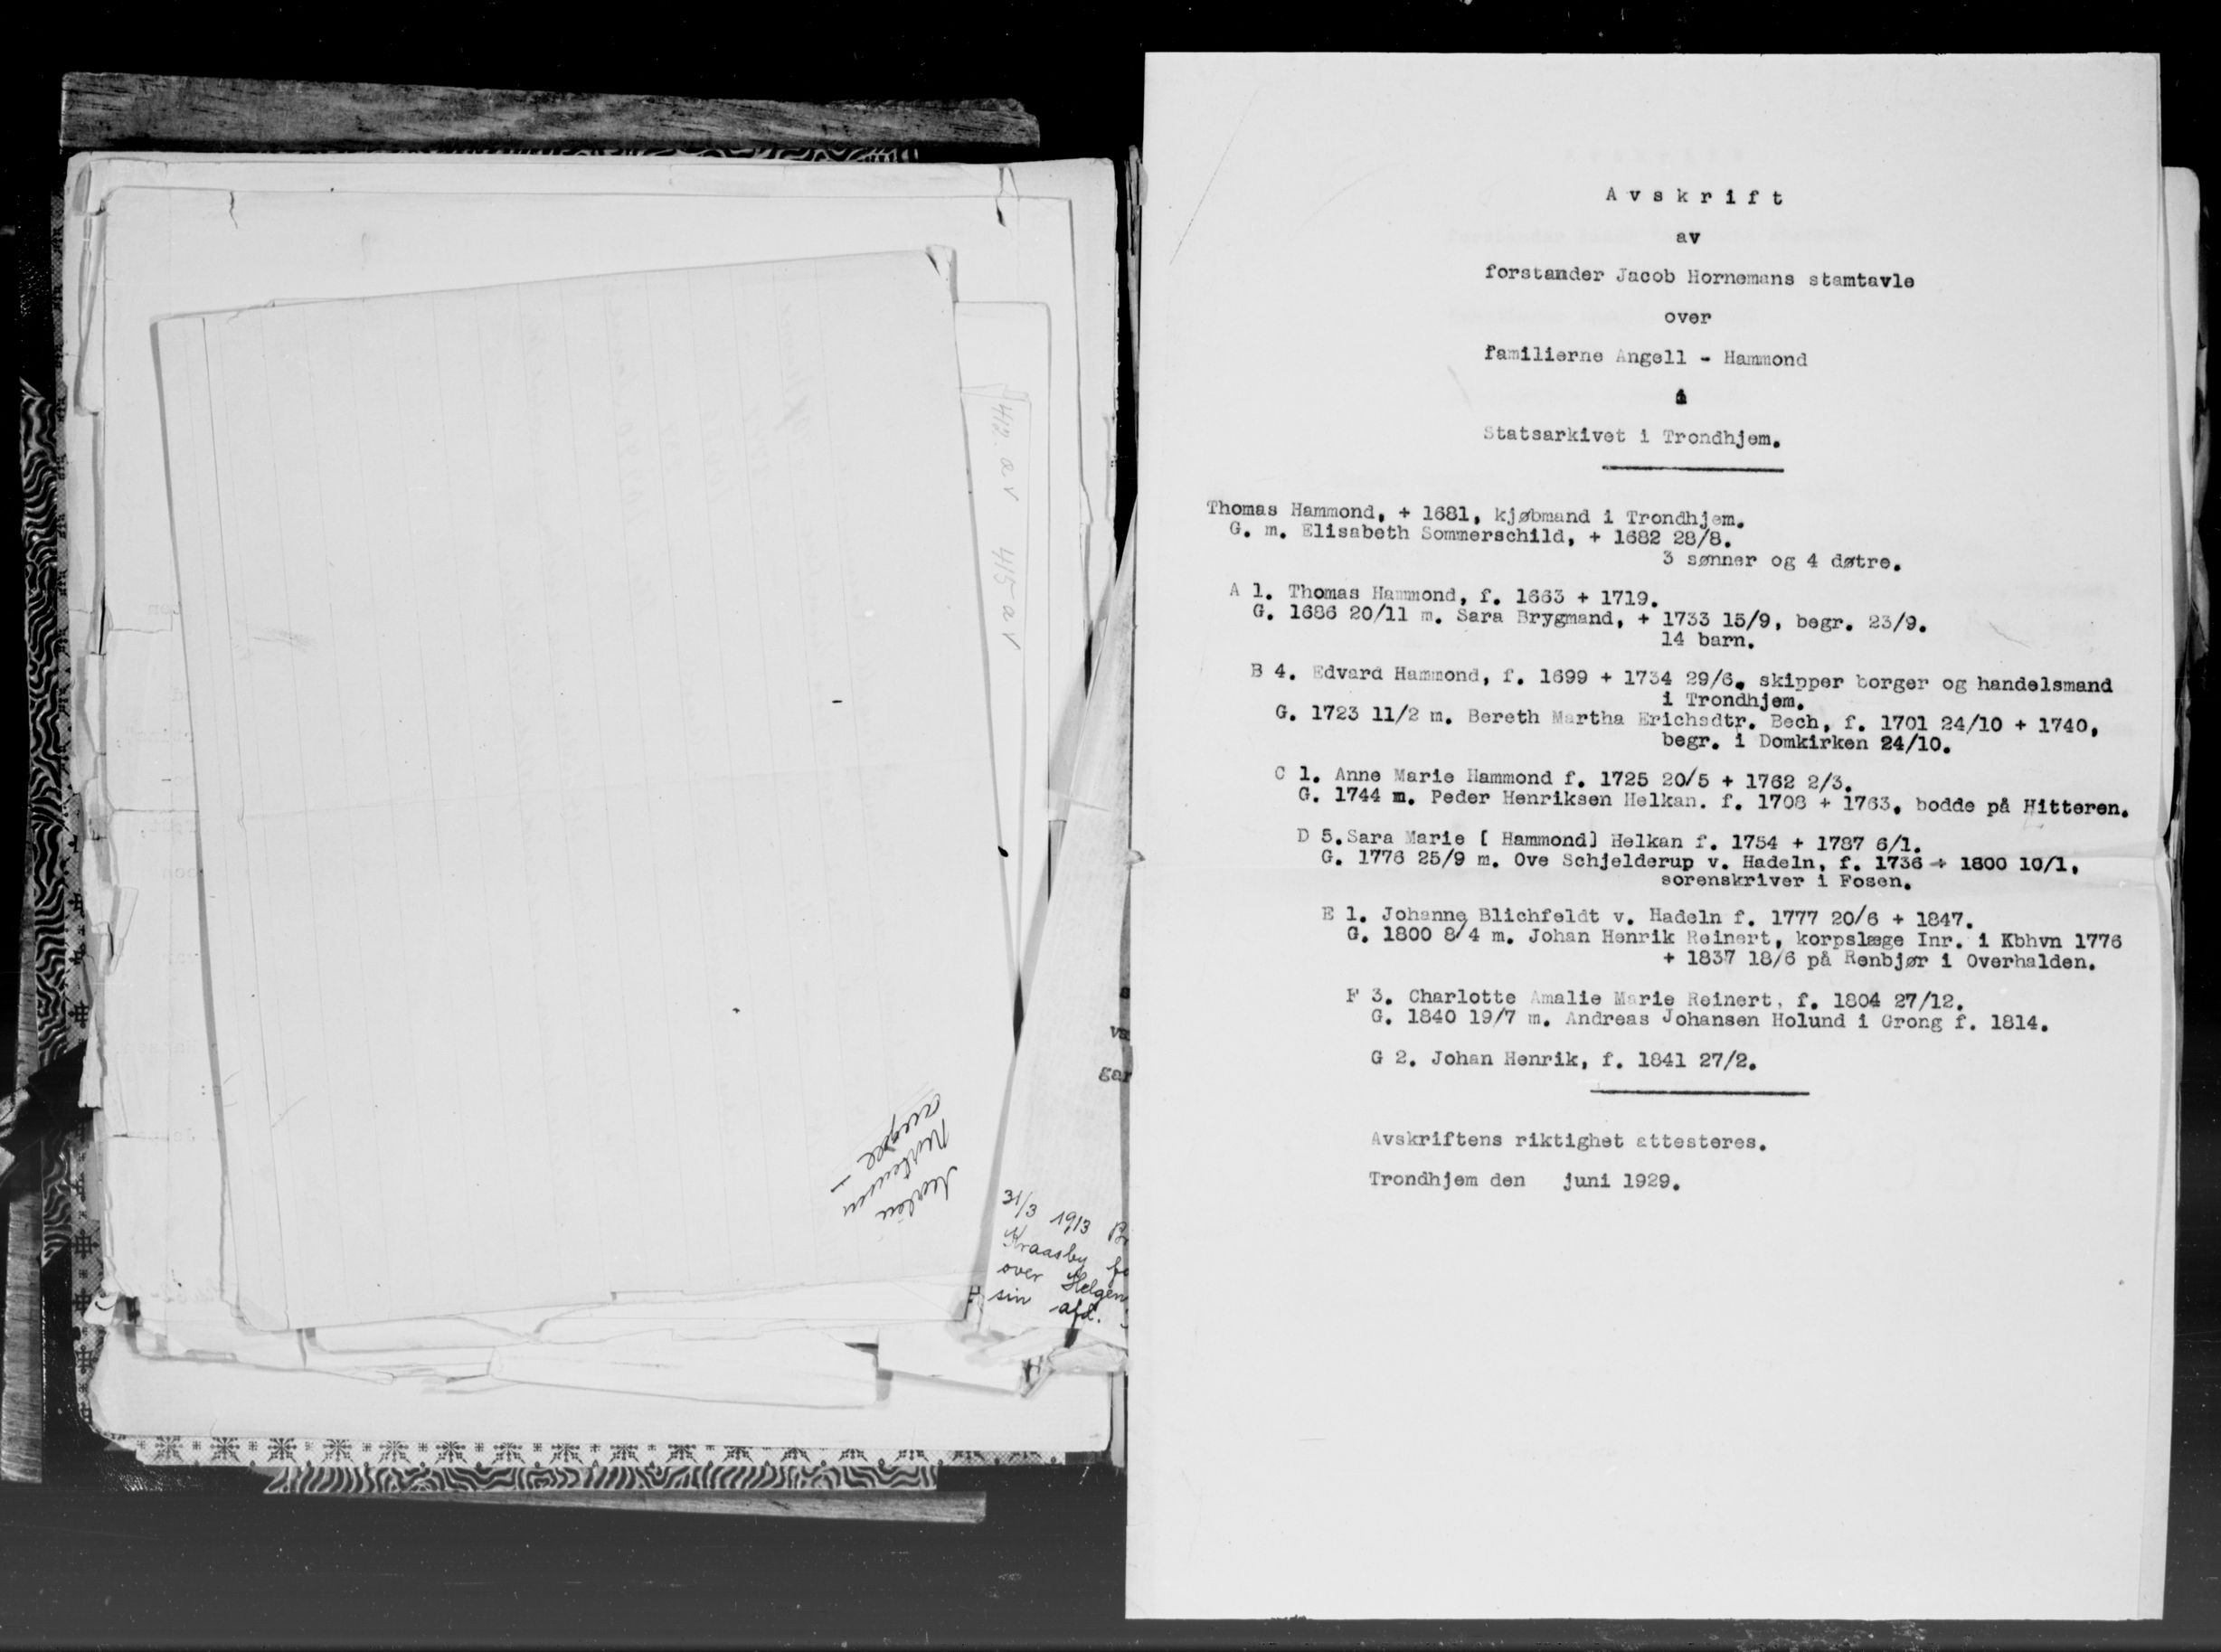 412. av 415 av
31/3 1913
Kraasby
over Helgen
sin afd.
Avskrift
av
forstander Jacob Hornemans stamtavle
over
familierne Angell - Hammond
i
Statsarkivet i Trondhjem.
Thomas Hammond, + 1681, kjøbmand i Trondhjem.
G. m. Elisabeth Sommerschild, + 1682 28/8.
3 sønner og 4 døtre.
A 1. Thomas Hammond, f. 1663 + 1719.
G. 1686 20/11 m. Sara Brygmand, + 1733 15/9, begr. 23/9.
14 barn.
B 4. Edvard Hammond, f. 1699 + 1734 29/6. skipper borger og handelsmand
i Trondhjem.
G. 1723 11/2 m. Bereth Martha Erichsdtr. Bech, f. 1701 24/10 + 1740,
begr. i Domkirken 24/10.
C 1. Anne Marie Hammond f. 1725 20/5 + 1762 2/3.
G. 1744 m. Peder Henriksen Helkan. f. 1708 + 1763, bodde på Hitteren.
D 5. Sara Marie [ Hammond] Helkan f. 1754 + 1787 6/1.
G. 1776 25/9 m. Ove Schjelderup v. Hadeln, f. 1736 + 1800 10/1,
sorenskriver i Fosen.
E 1. Johanne Blichfeldt v. Hadeln f. 1777 20/6 + 1847.
G. 1800 8/4 m. Johan Henrik Reinert, korpslæge Inr. i Kbhvn 1776
+ 1837 18/6 på Renbjør i Overhalden.
F 3. Charlotte Amalie Marie Reinert, f. 1804 27/12.
G. 1840 19/7 m. Andreas Johansen Holund i Grong f. 1814.
G 2. Johan Henrik, f. 1841 27/2.
Avskriftens riktighet attesteres.
Trondhjem den juni 1929.